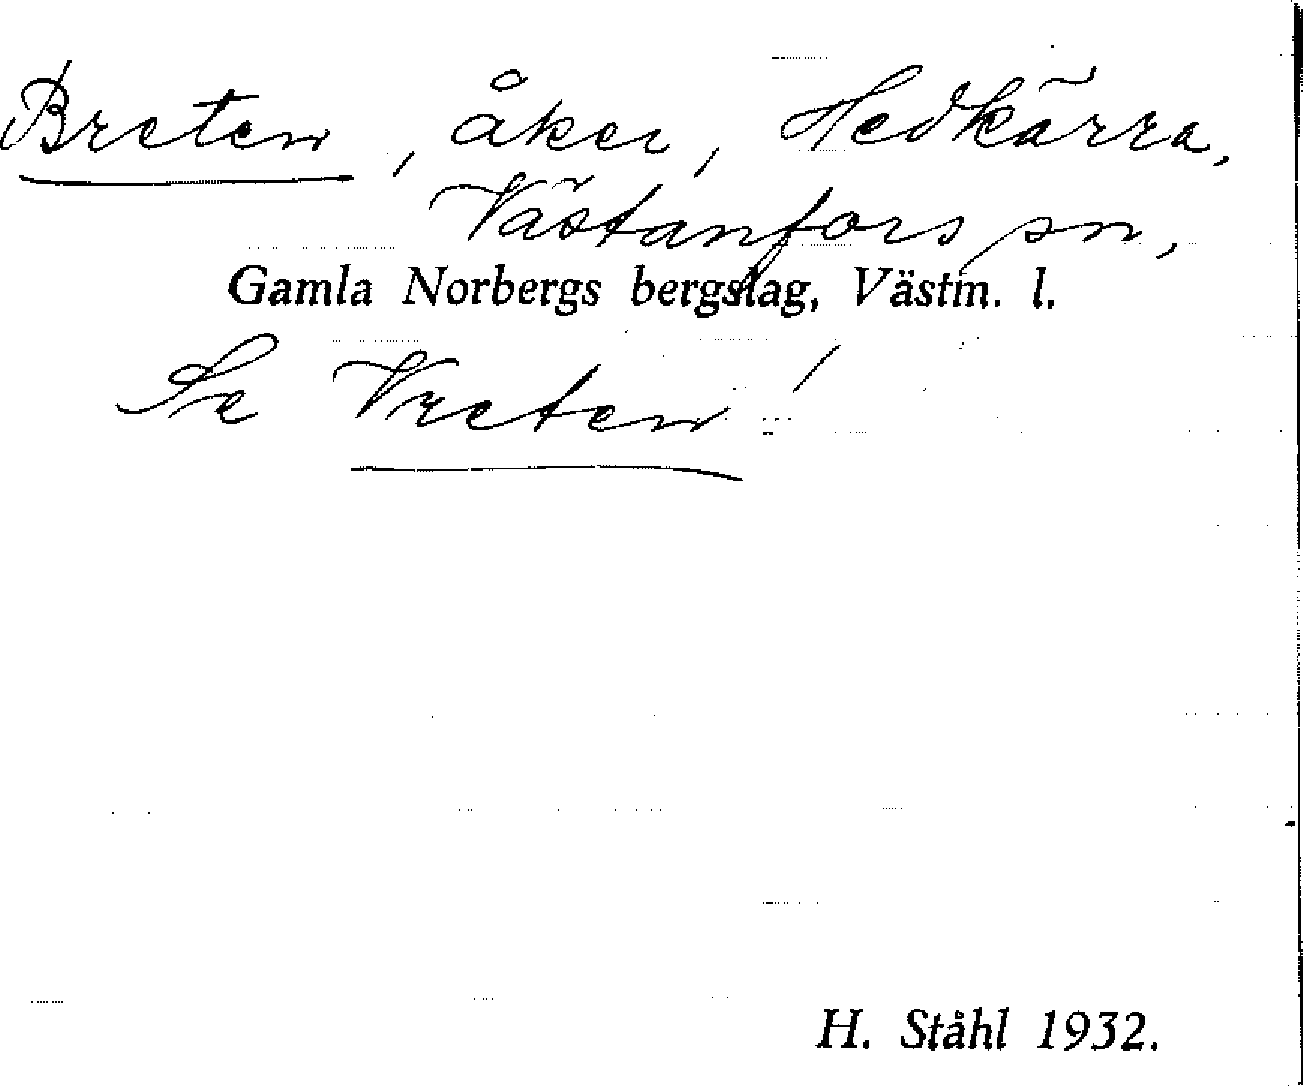 Breten, åker, Hedkärra,
Västanfors sn,
Gamla Norbergs bergslag, Västm. l.
Se Vreten!
H. Ståhl 1932.